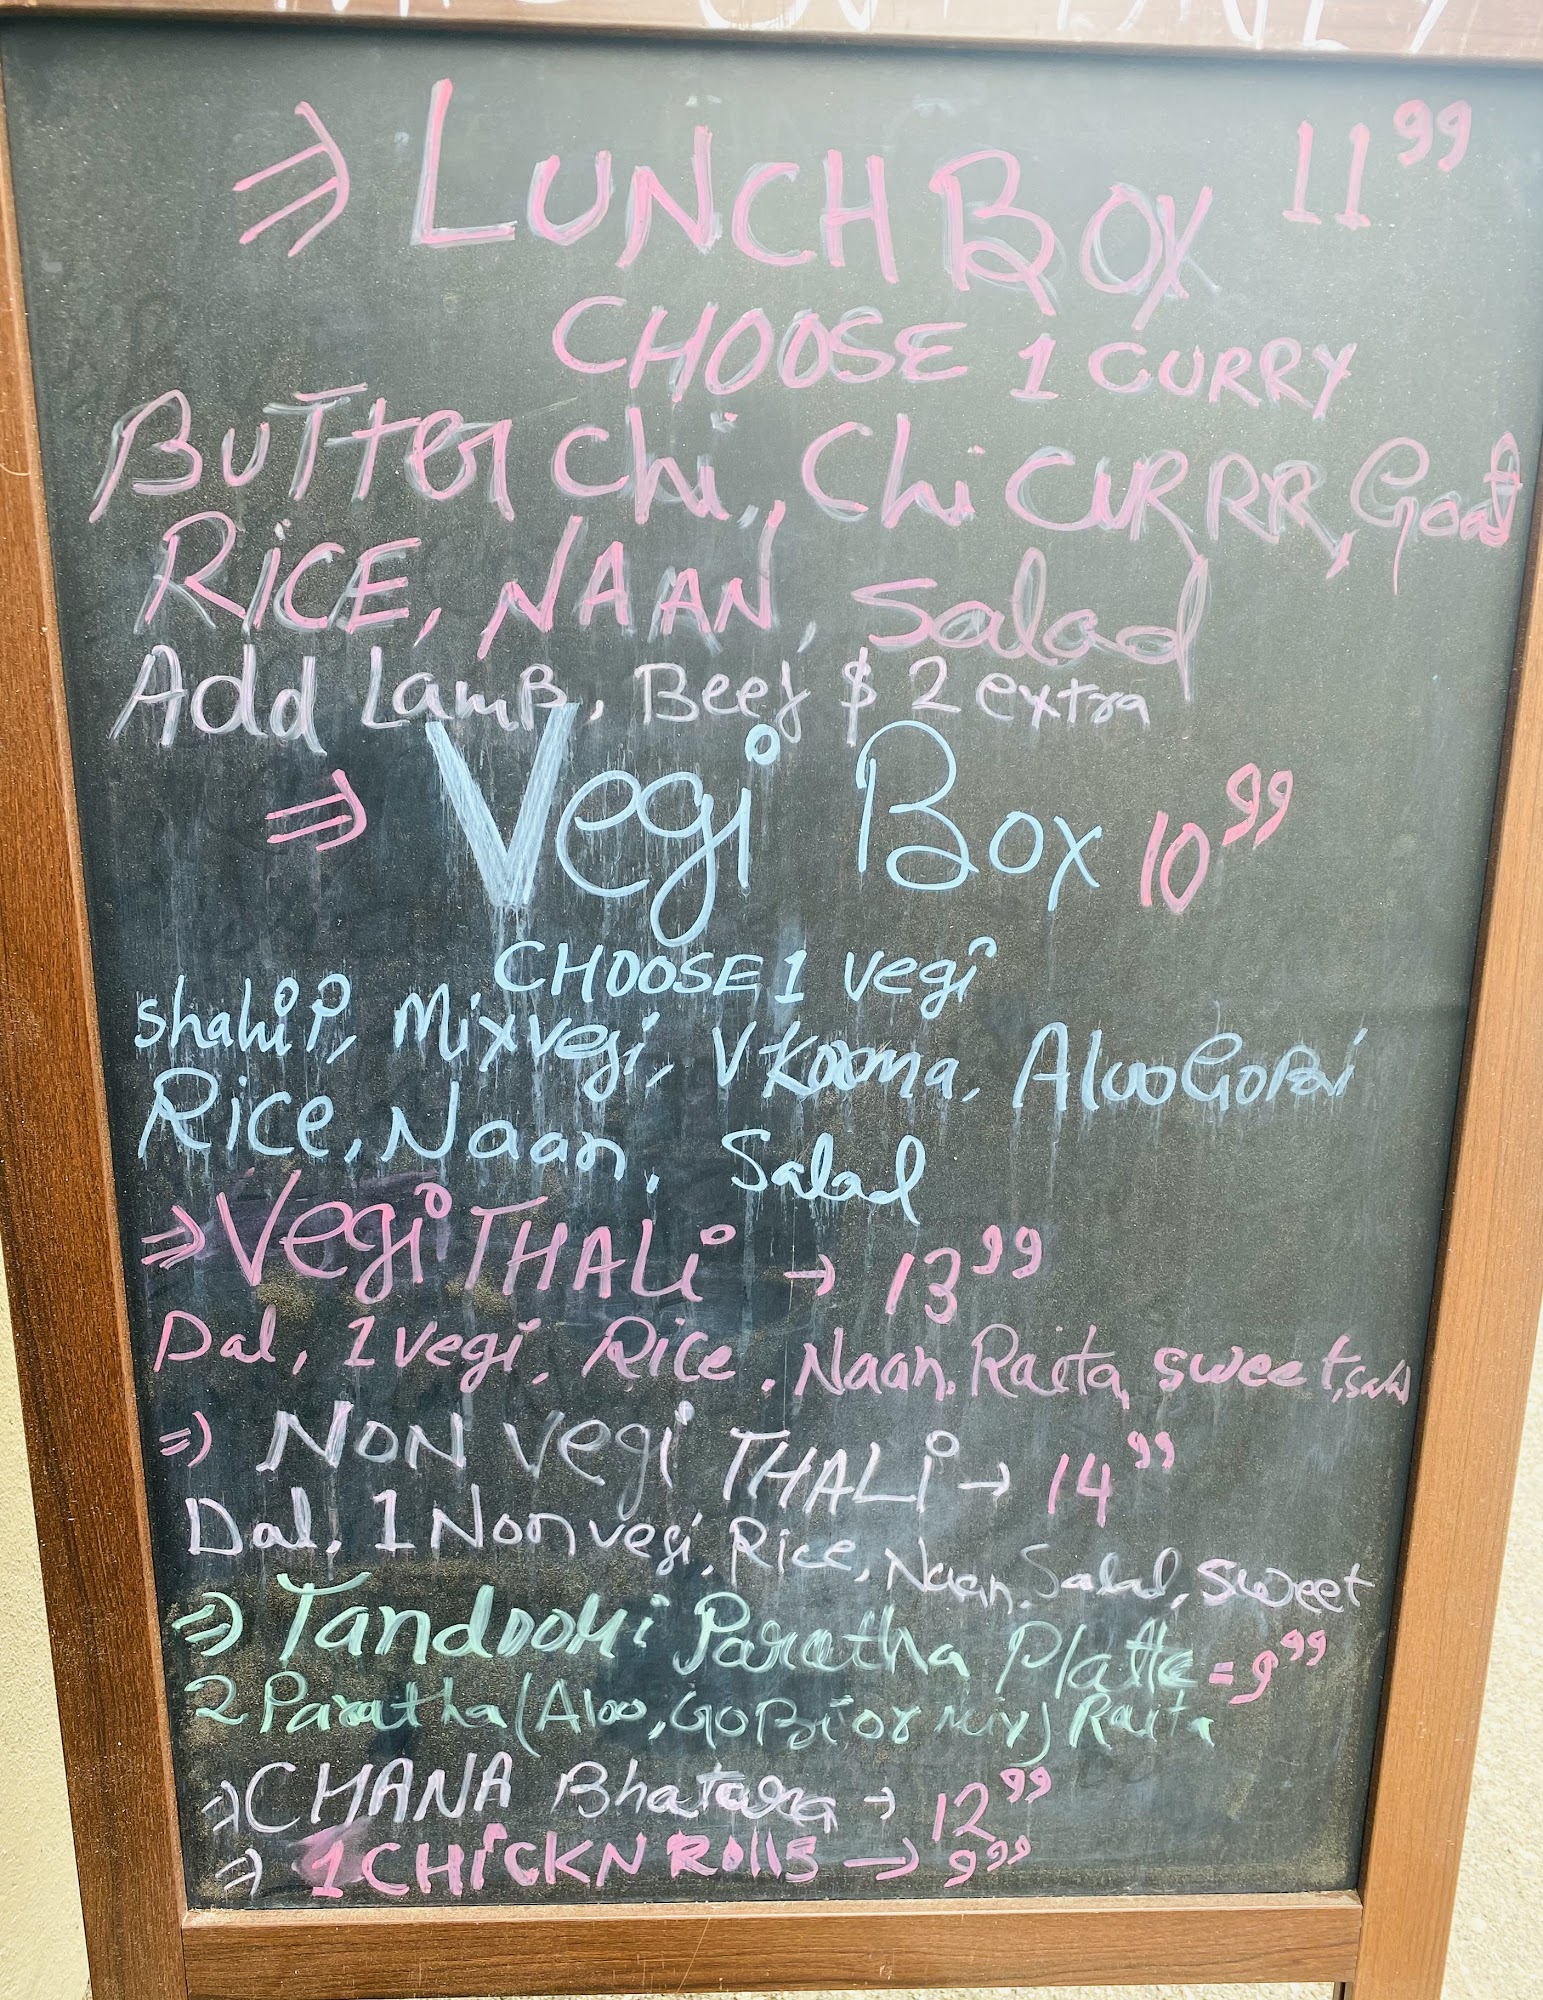 ⇒ LUNCH BOX 11⁹⁹
CHOOSE 1 CURRY
BUTTER Chi, Chi CURRR, Goat
RICE, NAAN, Salad
Add Lamb, Beef $2 extra
⇒ Vegi Box 10⁹⁹
CHOOSE 1 vegi
shahi P, Mixvegi, V Korma, Aloo Gobi
Rice, Naan, Salad
⇒ Vegi THALi → 13⁹⁹
Dal, 1 vegi, Rice, Naan, Raita, sweet, salad
⇒ NON vegi THALi → 14⁹⁹
Dal, 1 Non vegi, Rice, Naan, Salad, sweet
⇒ Tandoori Paratha Platte = 9⁹⁹
2 Paratha (Aloo, GOBi or Mix) Raita
⇒ CHANA Bhatura → 12⁹⁹
⇒ 1 CHiCKN ROllS → 9⁹⁹